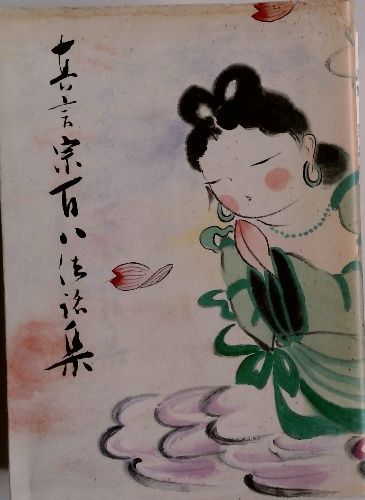 真言宗百八法話集